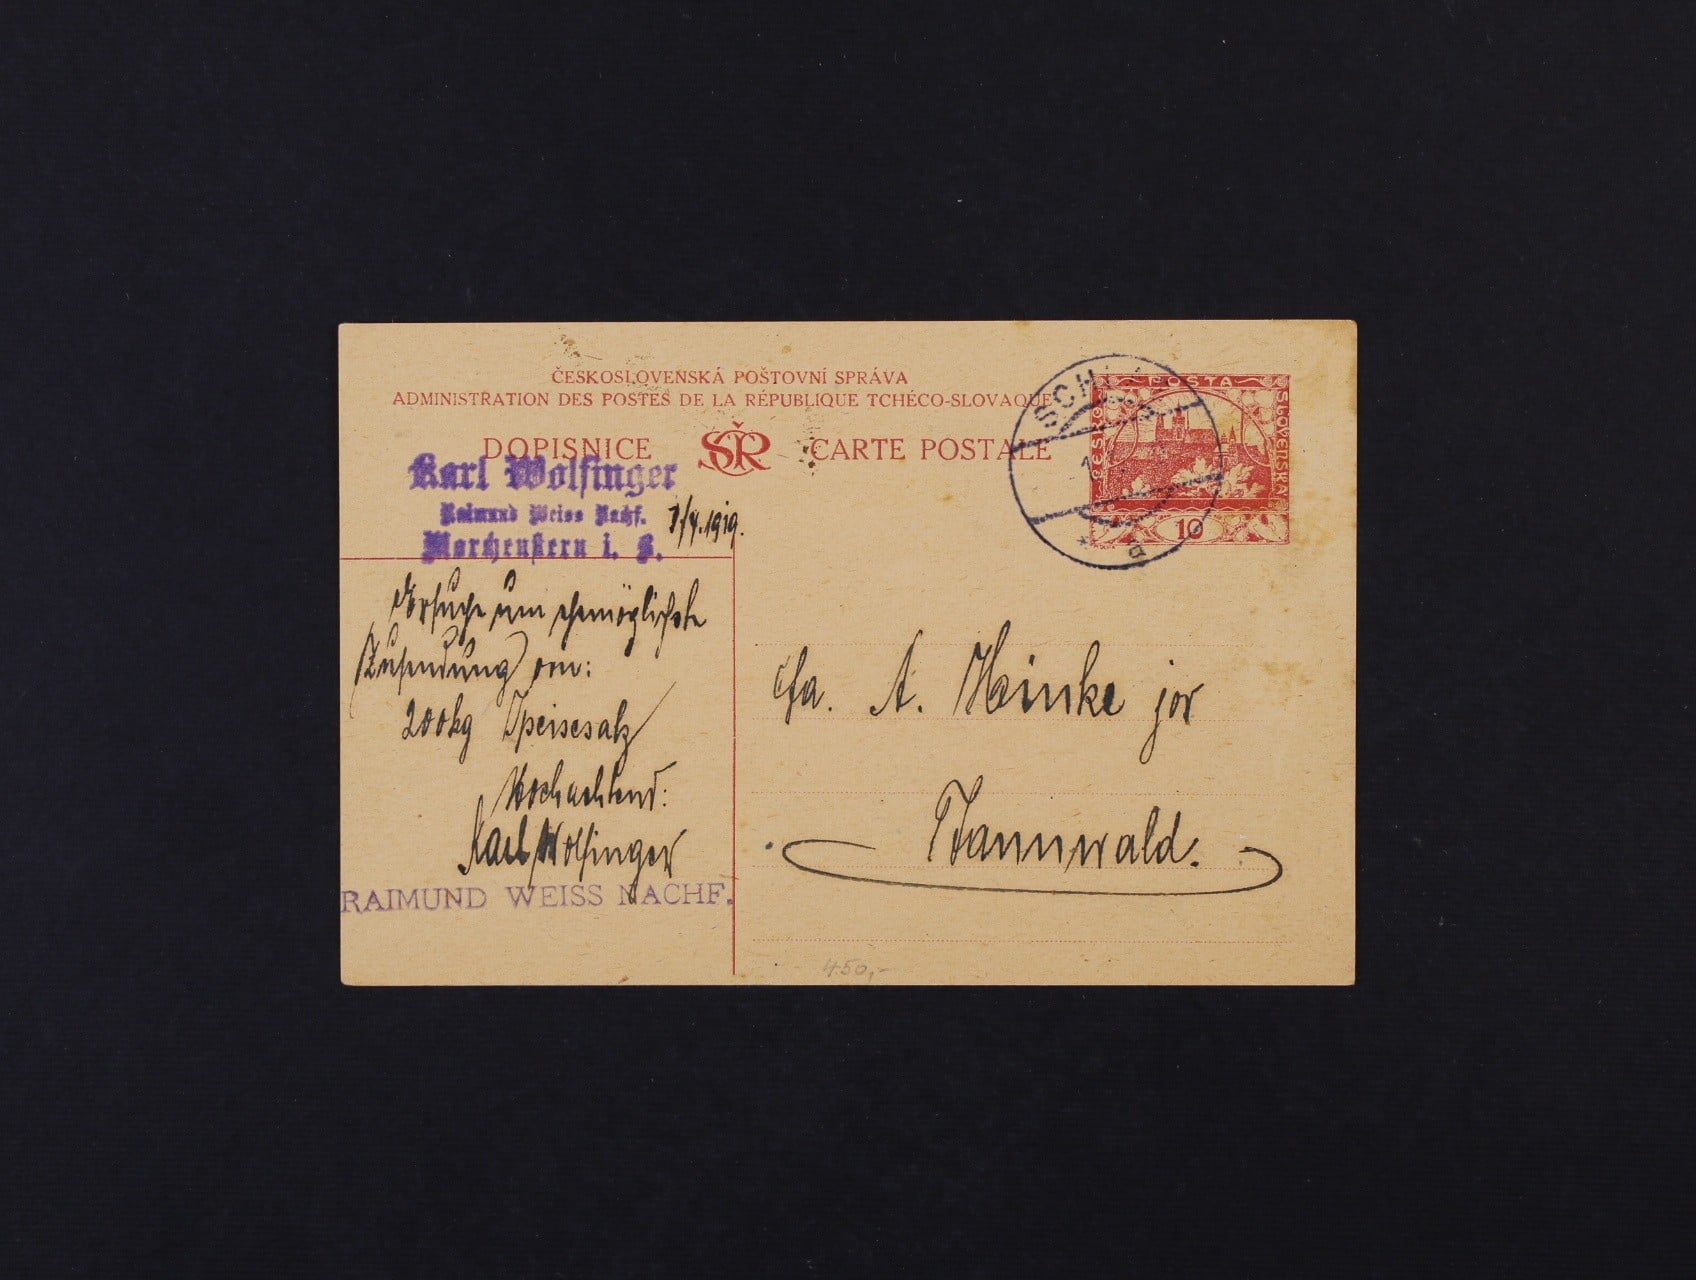 ČESKOSLOVENSKÁ POŠTOVNÍ SPRÁVA
ADMINISTRATION DES POSTES DE LA RÉPUBLIQUE TCHÉCO-SLOVAQUE
DOPISNICE SČR CARTE POSTALE
POSTA
ČESKO
SLOVENSKÁ
10
SCH
Karl Wolfinger
Raimund Weiss Nachf.
Morchenstern i. B.
7/4.1919.
Ersuche um ehemöglichste
Zusendung von:
200kg Speisesalz
Hochachtend:
Karl Wolfinger
RAIMUND WEISS NACHF.
Fa. A. Heinke jor
Tannwald.
450,-